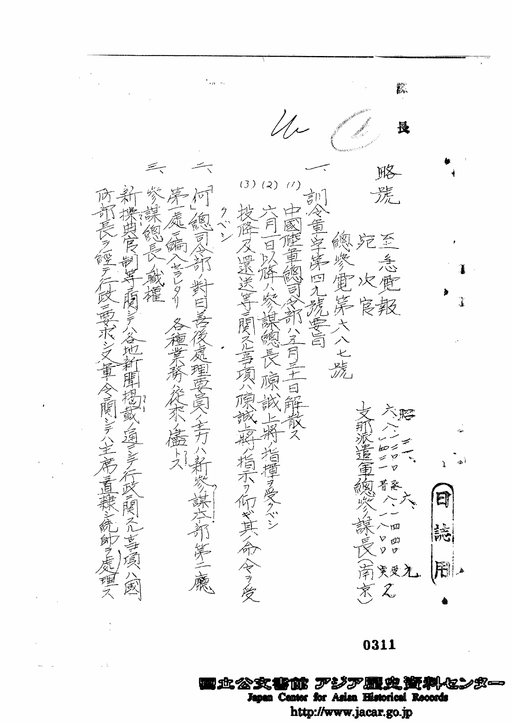 長
略號
至急電報
宛次官
總參電第六八七號
昭
支那派遣軍總參謀長(南京)
日誌用
一、訓令軍字第四九號要旨
(1)中國陸軍總司令部ハ五月三十一日解散ス
(2)六月一日以降ハ參謀總長陳誠上將ノ指揮ヲ受クベシ
(3)投降及還送等ニ關スル事項ハ陳誠上將ノ指示ヲ仰ギ其ノ命令ヲ受
クベシ
二、「何」總司令部ノ對日善後處理要員ノ主力ハ新參謀本部第二廳
第一處ニ編入セラレ各種業務従來ノ儘トス
三、參謀總長ノ職權
新 官制等ニ關シテハ各地新聞揭載ノ通ニシテ行政ニ關スル事項ハ國
防部長ヲ經テ行政ニ要求シ又軍令ニ關シテハ主席直隷シ統帥ヲ處理ス
0311
国立公文書館 アジア歴史資料センター
Japan Center for Asian Historical Records
http://www.jacar.go.jp